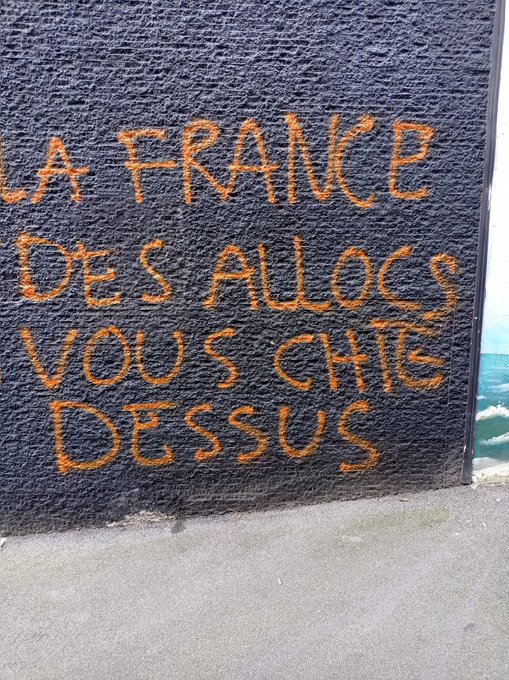 LA FRANCE
DES ALLOCS
VOUS CHIE
DESSUS